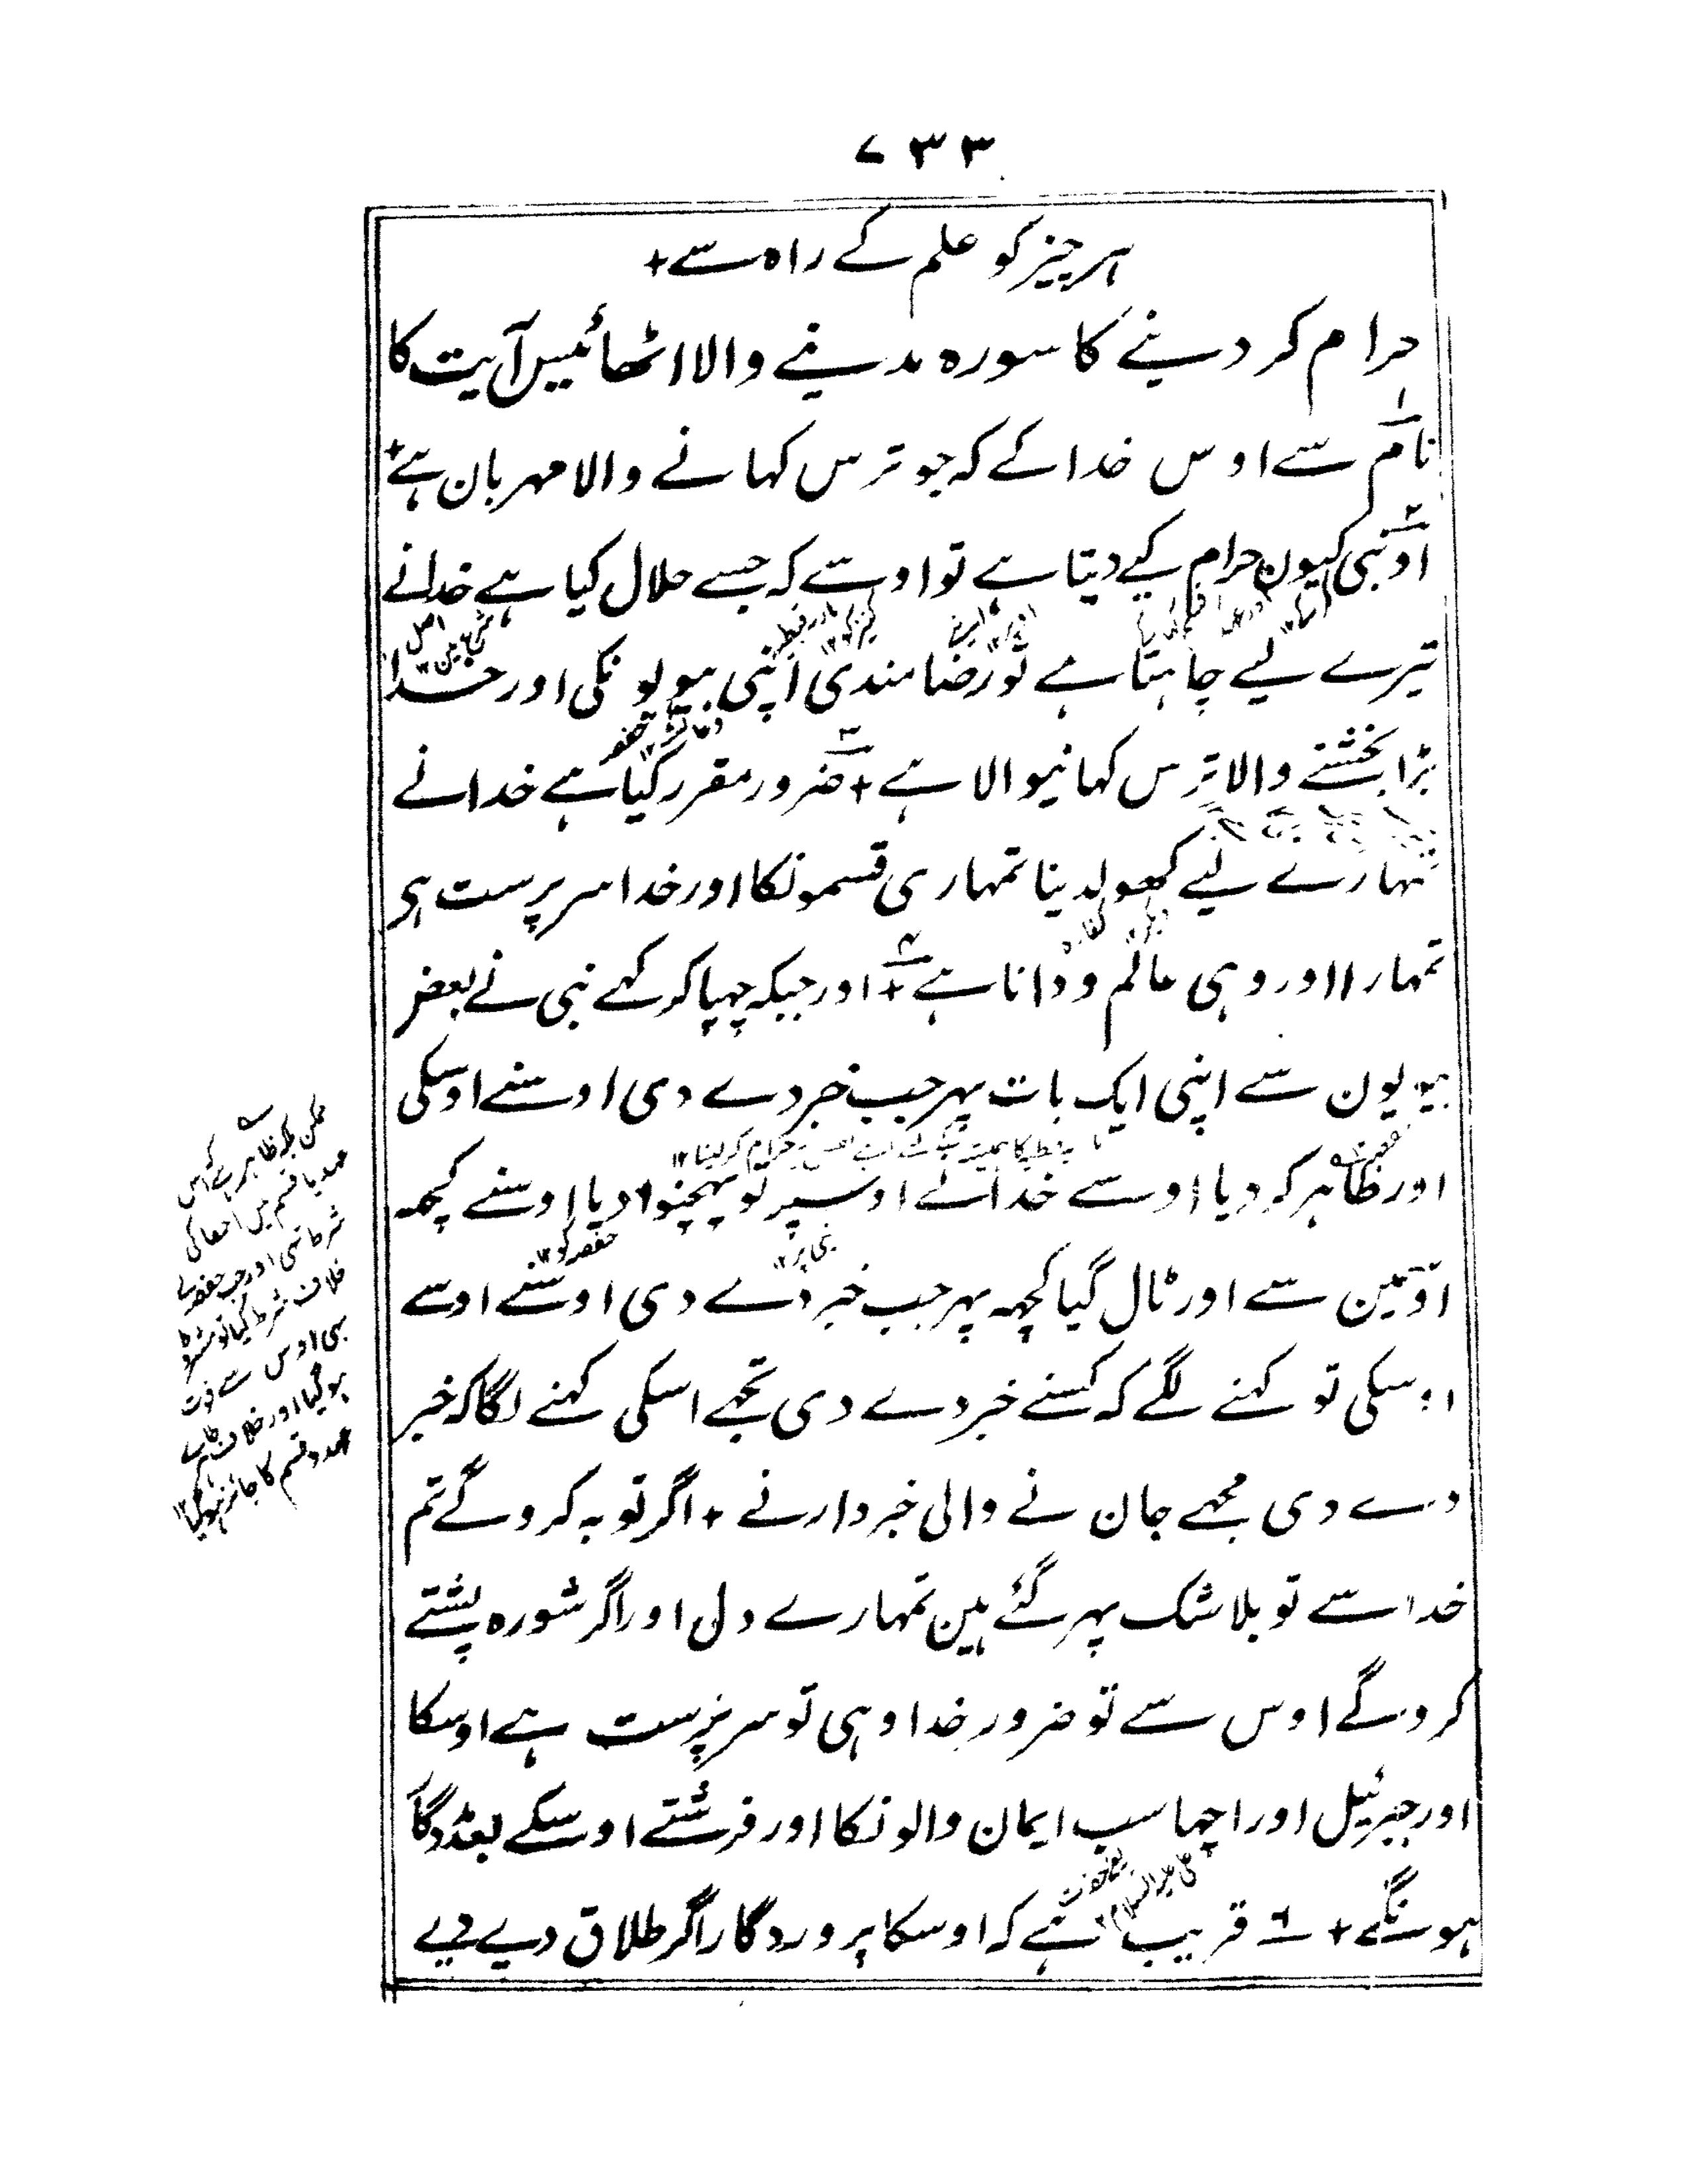 ۷۳۳
ہر چیز کو علم کے راہ سے +
حرام کر دینے کا سورہ مدینے والا اٹھائیس آیت کا
۱
نام سے اوس خدا کے کہ جو ترس کہانے والا مہربان ہے +
۲
او نبی کیون حرام کیے دیتا ہے تو اوسے کہ جسے حلال کیا ہے خدا نے
تیرے لیے چاہتا ہے تو رضامندی اپنی بیویونکی اور خدا
بڑا بخشنے والا ترس کہانیوالا ہے + ۳ ضرور مقرر کیا ہے خدا نے
تمہارے لیے کھولدینا تمہاری قسمونکا اور خدا سرپرست ہی
تمہارا اور وہی عالم و دانا ہے + ۴ اور جبکہ چہپا کر کہے نبی نے بعض
بیویون سے اپنی ایک بات پہر جب خبر دے دی اوسنے اوسکی
اور ظاہر کر دیا اوسے خدا نے اوسپر تو پہچنوا دیا اوسنے کچہ
اوسمین سے اور ٹال گیا کچہہ پہر جب خبر دے دی اوسنے اوسے
حفصہ کو ۱۲
اوسکی تو کہنے لگے کہ کسنے خبر دے دی تجہے اسکی کہنے لگا کہ خبر
دے دی مجہے جان نے والی خبردار نے + اگر توبہ کروگے تم
خدا سے تو بلا شک پہر گئے ہین تمہارے دل اور اگر شورہ پشتے
کروگے اوس سے تو ضرور خدا وہی تو سرپرست ہے اوسکا
اور جبرئیل اور اچہا سب ایمان والونکا اور فرشتے اوسکے بعد مددگار
ہونگے + ۶ قریب ہے کہ اوسکا پروردگار اگر طلاق دیے دیے
ممکن بلکہ ظاہر ہے کہ اس
عہد یا قسم میں اخفا کی
شرط تہی اور جب حفصہ نے
خلاف شرط کیا تو مشروط
بہی اوس سے فوت
ہو گیا اور خلاف
عہد و قسم کا جائز ہو گیا ۱۲